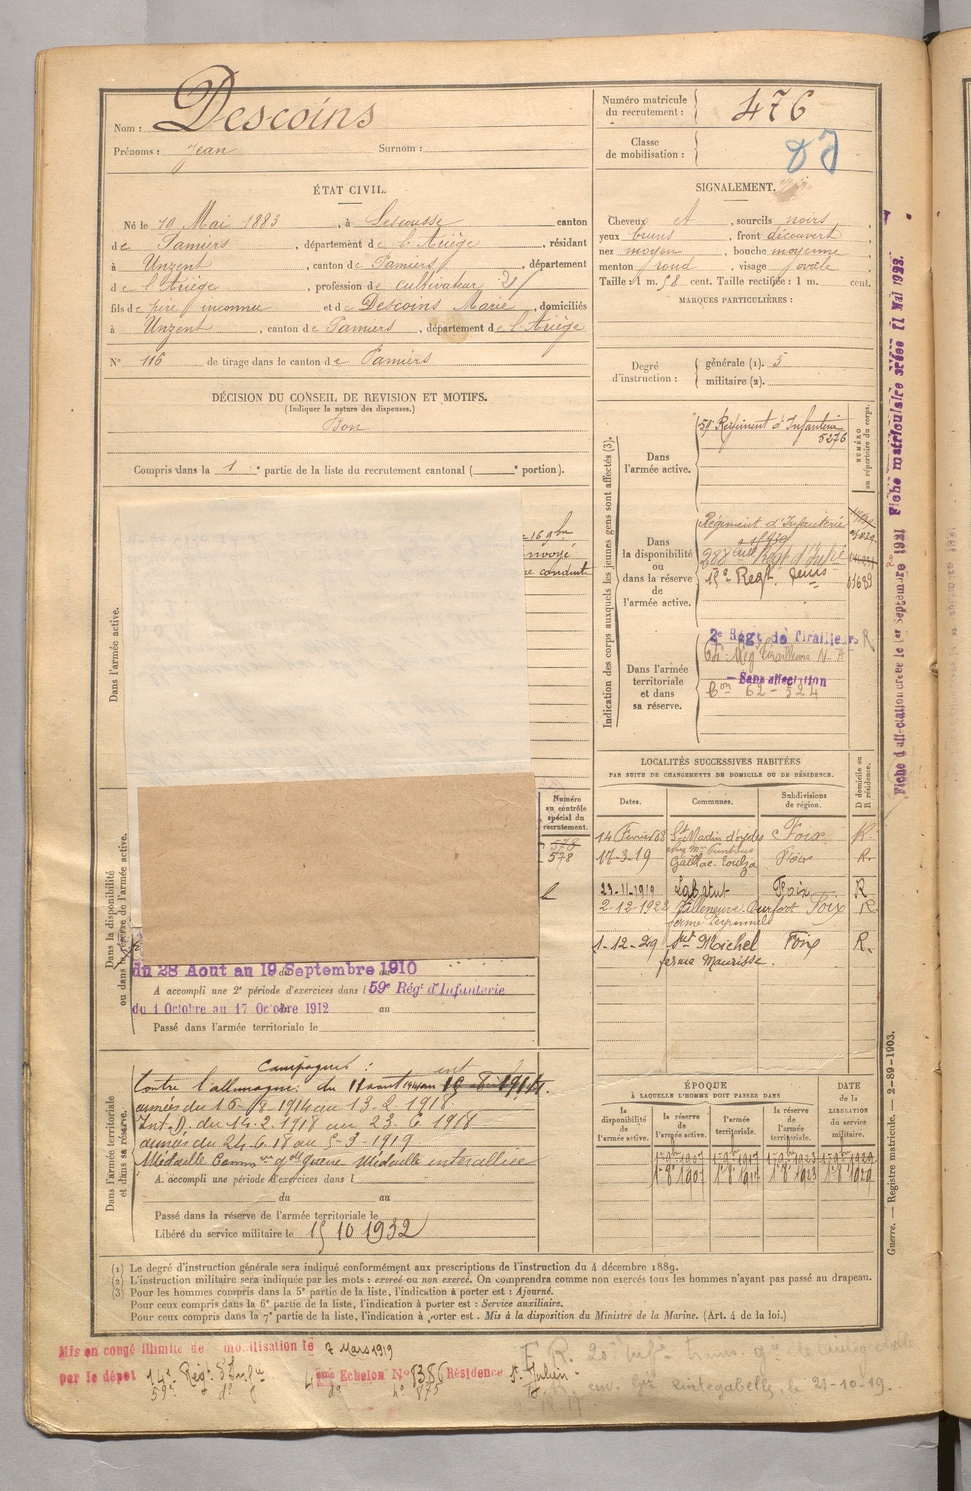 Nom : Descoins
Prénoms : Jean Surnom :
Numéro matricule du recrutement : 476
Classe de mobilisation :
ÉTAT CIVIL.
Né le 10 Mai 1883, à Lescousse canton
de Pamiers, département de l'Ariège, résidant
à Unzent, canton de Pamiers, département
de l'Ariège, profession de cultivateur
fils de père inconnu et de Descoins Marie, domiciliés
à Unzent, canton de Pamiers, département de l'Ariège
N° 116 de tirage dans le canton de Pamiers
DÉCISION DU CONSEIL DE REVISION ET MOTIFS.
(Indiquer la nature des dispenses.)
Bon
Compris dans la 1e partie de la liste du recrutement cantonal ( e portion).
SIGNALEMENT.
Cheveux et, sourcils noirs,
yeux bruns, front découvert,
nez moyen, bouche moyenne
menton rond, visage ovale
Taille : 1 m. 58 cent. Taille rectifiée : 1 m. cent.
MARQUES PARTICULIÈRES :
Degré d'instruction :
générale (1). 3
militaire (2).
Indication des corps auxquels les jeunes gens sont affectés (3).
NUMÉRO au répertoire du corps.
Dans l'armée active.
59e Régiment d'Infanterie
5276
Dans la disponibilité ou dans la réserve de l'armée active.
Régiment d'Infanterie
288eme Regt d'Infie
15e Regt.
Dans l'armée territoriale et dans sa réserve.
2e Régt de Tirailleurs R
Tirailleurs N-A
Sans affectation
Con 62-524
Dans l'armée active.
16 9bre
envoyé
conduite
Numéro au contrôle spécial du recrutement.
578
578
LOCALITÉS SUCCESSIVES HABITÉES
PAR SUITE DE CHANGEMENTS DE DOMICILE OU DE RÉSIDENCE.
Dates. Communes. Subdivisions de région. D domicile ou R résidence.
14 Février 08 St Martin d'oydes Foix R.
17-3-19 Gaillac-Toulza Foix R.
23-11-1919 Labatut Foix R
2-12-1922 Villeneuve Durfort Foix R
1-12-29 St Michel Foix R.
ferme Maurisse.
Dans la disponibilité ou dans la réserve de l'armée active.
du 28 Aout au 19 Septembre 1910
A accompli une 2e période d'exercices dans l 59e Régt d'Infanterie
du 1 Octobre au 17 Octobre 1912 au
Passé dans l'armée territoriale le
Dans l'armée territoriale et dans sa réserve.
Campagnes :
Contre l'allemagne : du 11 aout 1914 au
armées du 16-8-1914 au 13.2.1918
Int. D. du 14.2.1918 au 23.6 1918
armées du 24.6.18 au 5-3-1919
Médaille Comm ve gde guerre Médaille interalliée
A. accompli une période d'exercices dans l
du au
Passé dans la réserve de l'armée territoriale le
Libéré du service militaire le 15 10 1932
ÉPOQUE
À LAQUELLE L'HOMME DOIT PASSER DANS
la disponibilité de l'armée active. la réserve de l'armée active. l'armée territoriale. la réserve de l'armée territoriale.
DATE de la LIBÉRATION du service militaire.
1er 9bre 1907 1er 9bre 1917 1er 9bre 1923 1er 9bre 1929
1er 8 1907 1er 8 1917 1er 8 1923 1er 8 1929
(1) Le degré d'instruction générale sera indiqué conformément aux prescriptions de l'instruction du 4 décembre 1889.
(2) L'instruction militaire sera indiquée par les mots : exercé ou non exercé. On comprendra comme non exercés tous les hommes n'ayant pas passé au drapeau.
(3) Pour les hommes compris dans la 5e partie de la liste, l'indication à porter est : Ajourné.
Pour ceux compris dans la 6e partie de la liste, l'indication à porter est : Service auxiliaire.
Pour ceux compris dans la 7e partie de la liste, l'indication à porter est : Mis à la disposition du Ministre de la Marine. (Art. 4 de la loi.)
Mis en congé illimité de mobilisation le 7 Mars 1919
par le dépôt 14e Régt d'Infie 4ème Echelon N° 6386 Résidence St Julien
59e do do No 875
21-10-19.
Fiche d'affectation créée le 1er Septembre 1921 Fiche matriculaire créée 11 Mai 1923.
Guerre. — Registre matricule. — 2-89-1903.